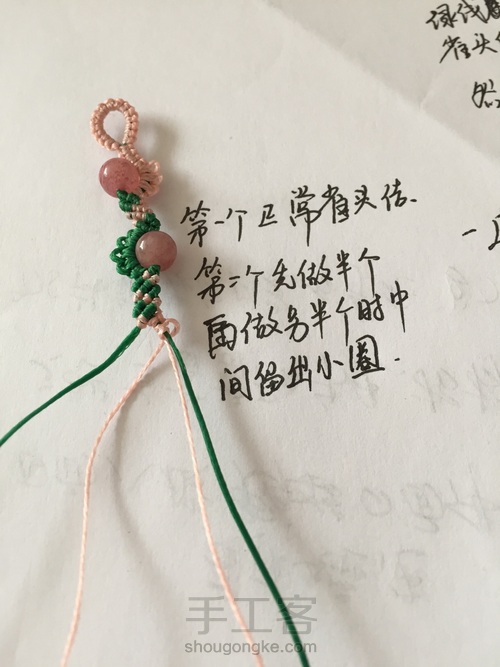 绿线
雀头
然
第一个正常雀头结.
第二个先做半个
再做另半个时中
间留出小圈.
手工客
shougongke.com